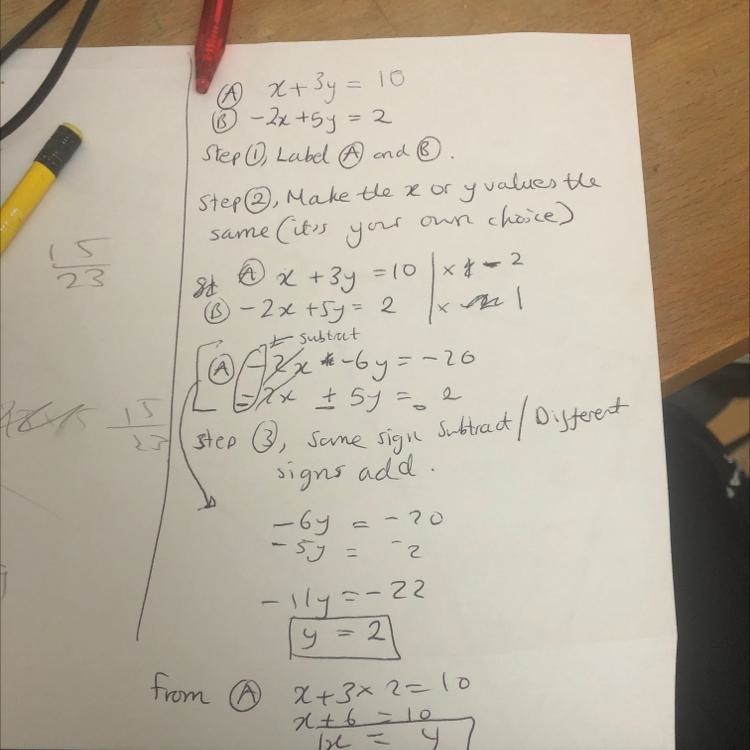 15
23
15
23
Ⓐ x + 3y = 10
Ⓑ -2x + 5y = 2
Step ①, Label Ⓐ and Ⓑ.
Step ②, Make the x or y values the
same (it's your own choice)
Ⓐ x + 3y = 10 | × - 2
Ⓑ -2x + 5y = 2 | × 1
subtract
Ⓐ -2x -6y = -20
-2x ± 5y = 2
Step ③, same sign subtract / Different
signs add.
-6y = -20
-5y = -2
-11y = -22
y = 2
From Ⓐ x + 3 × 2 = 10
x + 6 = 10
x = 4